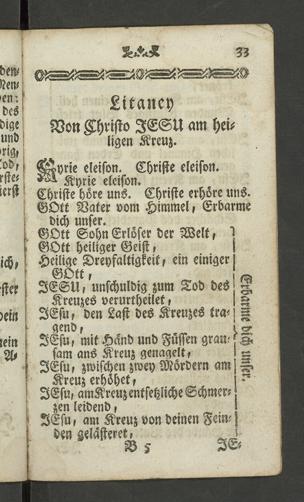 33
Litaney
Von Christo JESU am hei-
ligen Kreuz.
Kyrie eleison. Christe eleison.
Kyrie eleison.
Christe höre uns. Christe erhöre uns.
GOtt Vater vom Himmel, Erbarme
dich unser.
GOtt Sohn Erlöser der Welt,
GOtt heiliger Geist,
Heilige Dreyfaltigkeit, ein einiger
GOtt,
JESU, unschuldig zum Tod des
Kreuzes verurtheilet,
JEsu, den Last des Kreuzes tra-
gend,
JEsu, mit Händ und Füssen grau-
sam ans Kreuz genagelt,
JEsu, zwischen zwey Mördern am
Kreuz erhöhet,
JEsu, am Kreuz entsetzliche Schmer-
zen leidend,
JEsu, am Kreuz von deinen Fein-
den gelästeret,
Erbarme dich unser.
B 5
JE-